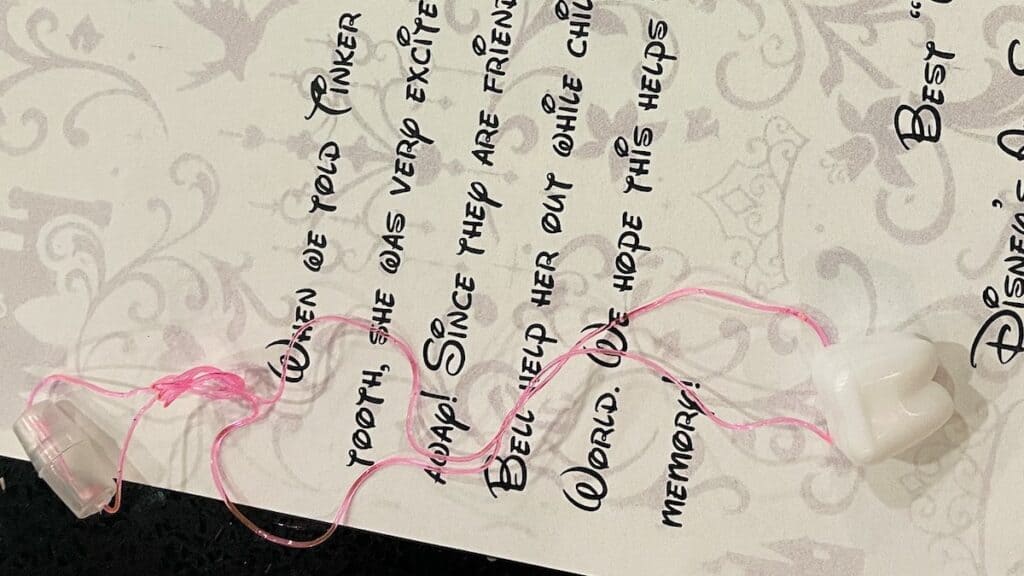 When we told Tinker
tooth, she was very excite
away! Since they are friend
Bell help her out while chil
World. We hope this helps
memory!
Best "
Disney's